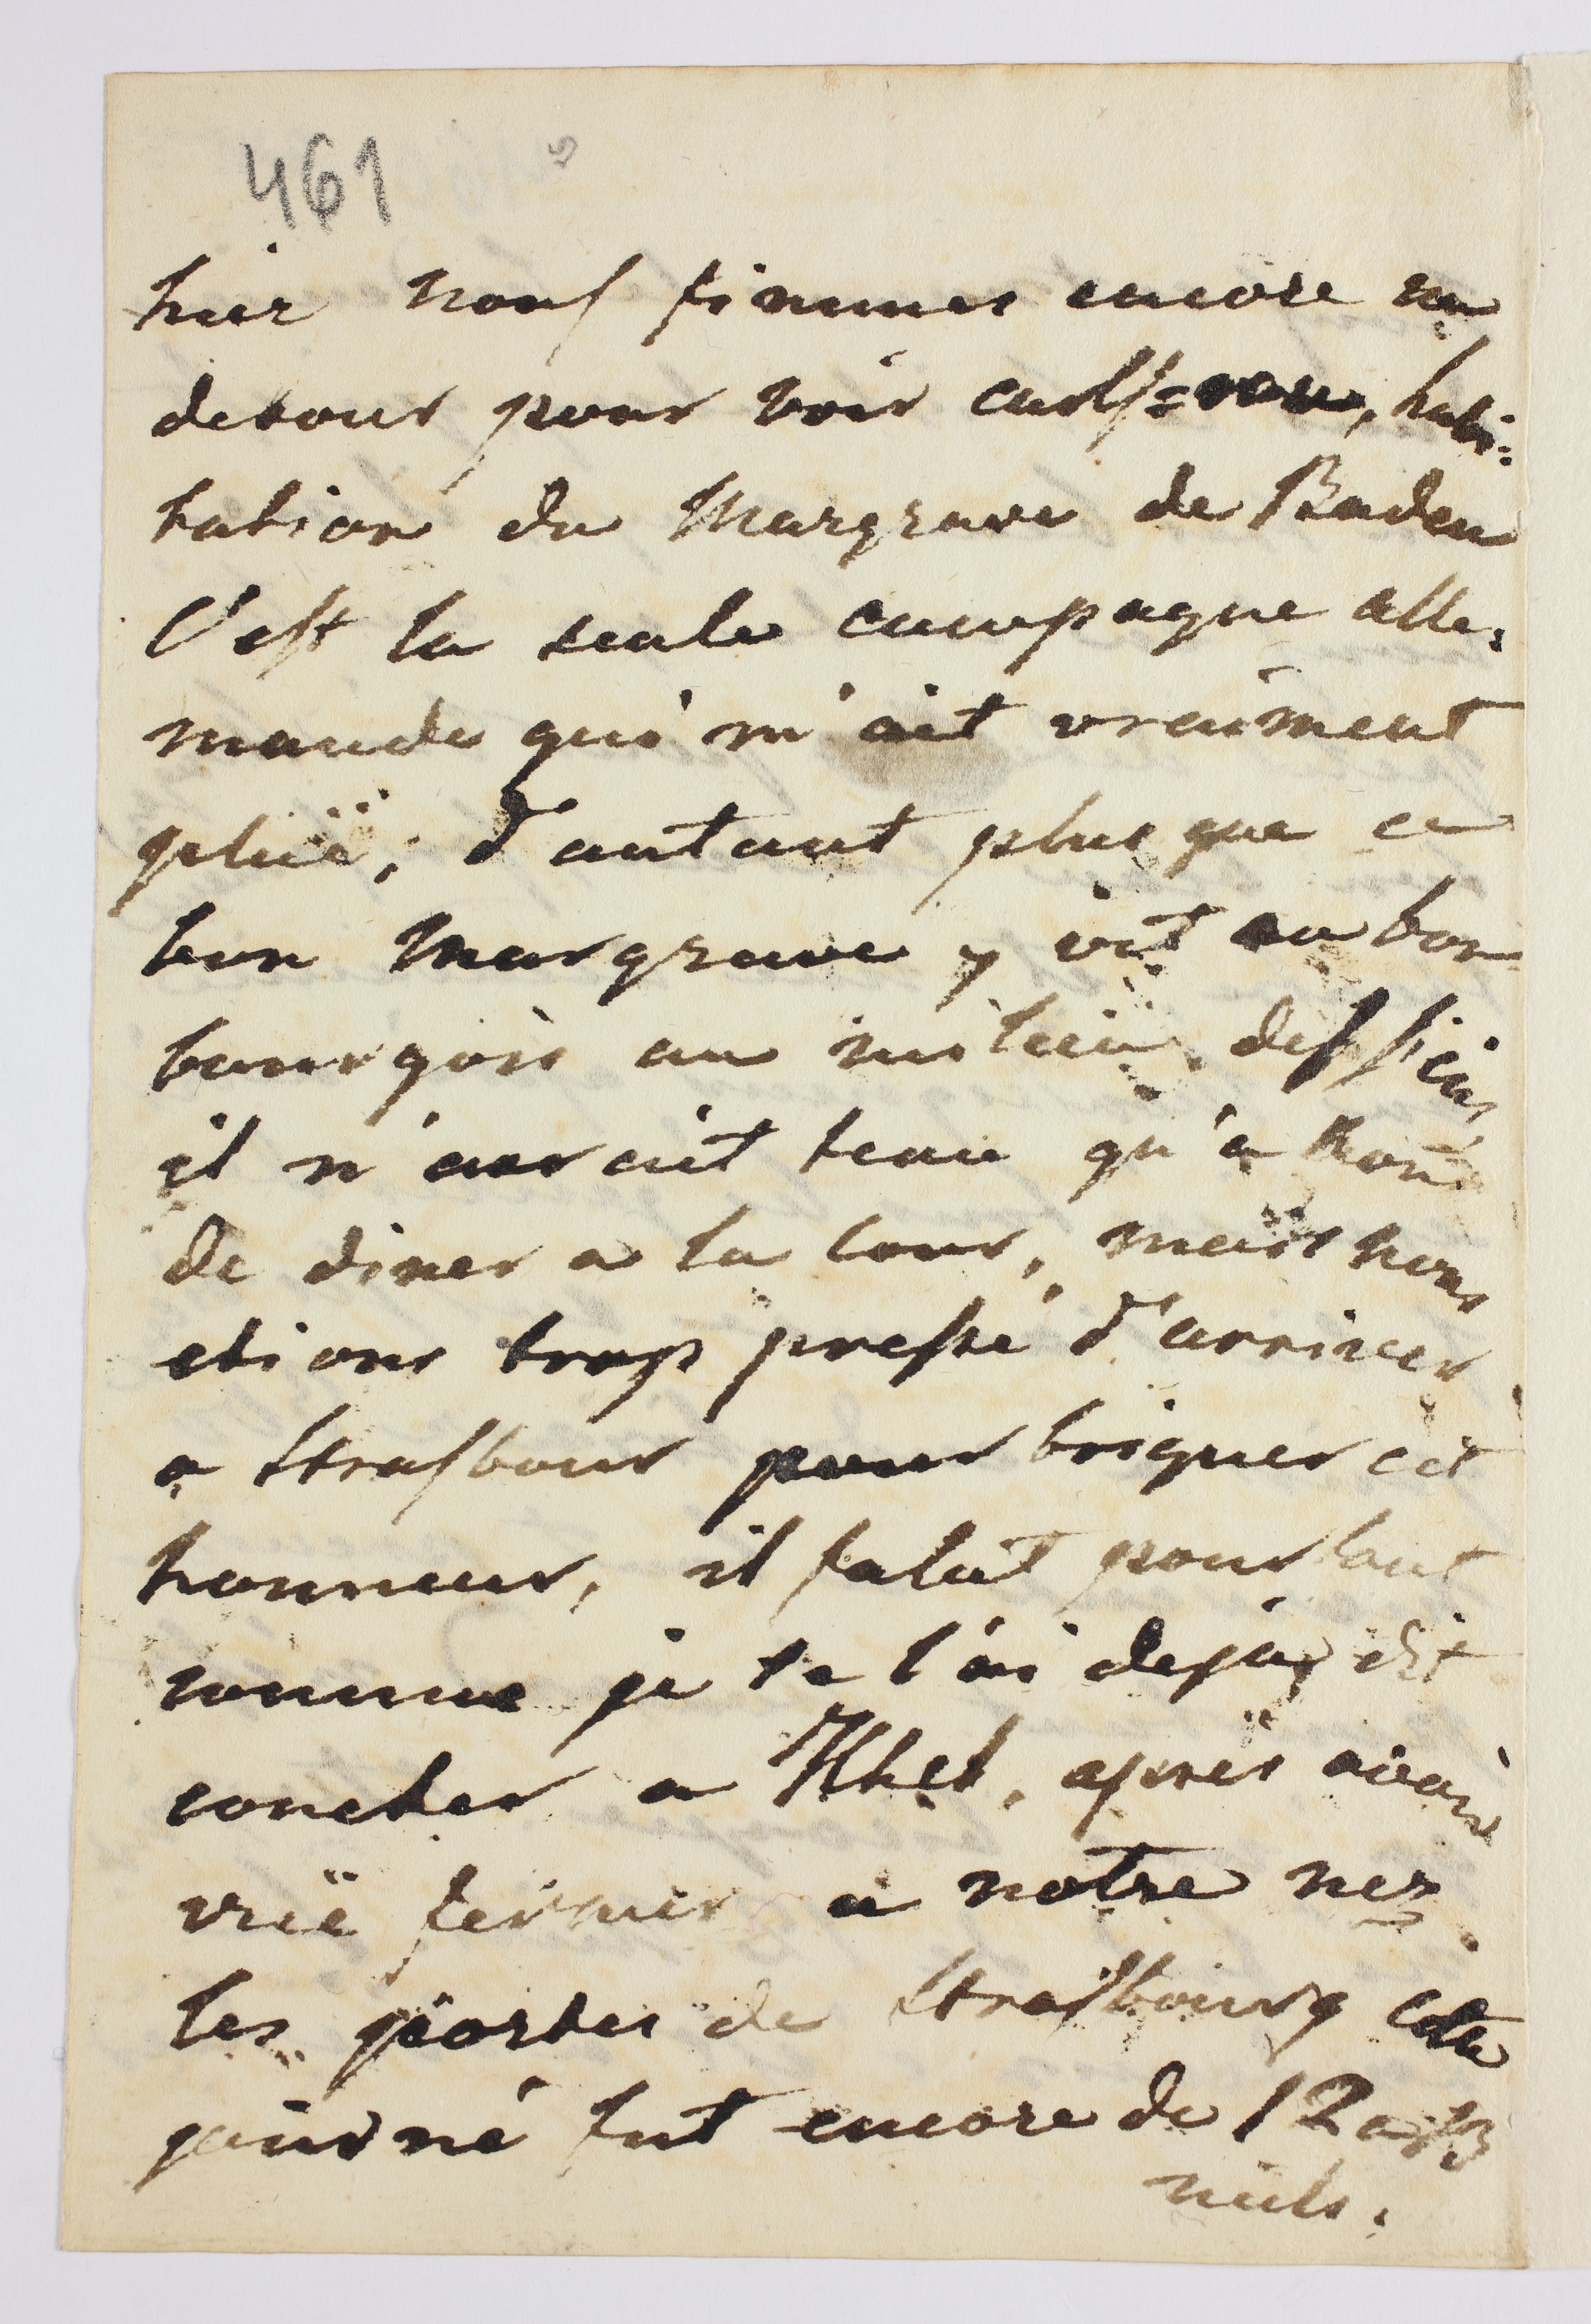 461
hier nous fimmes encore un
detour pour voir carls=rou, habi=
tation du Margrave de Baden
C'est la seule campagne alle=
mande qui m'ait vraiment
pluë; d'autant plus que ce
bon Margrave y vit en bon
bourgois au milieu des siens,
il n'avait tenu qu'a nous
de diner a la Cour, mais nous
etions trop pressé d'arriver
a Strasbour pour briguer cet
honneur, il falut pourtant
comme je te l'ai deja dit
coucher a Khel, apres avoir
vuë fermer a notre nez
les portes de Strasbourg cette
journé fut encore de 12 a 13
mils.